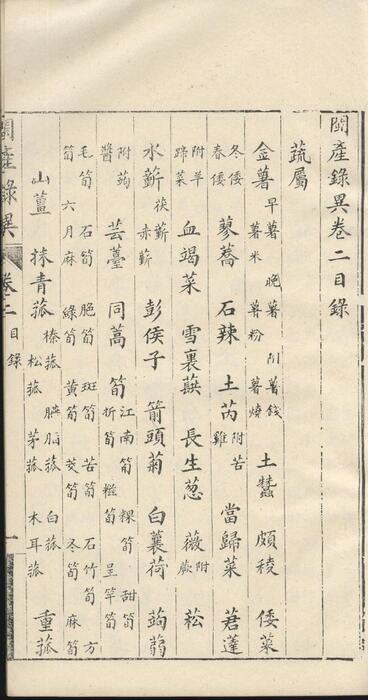 閩產錄異卷二目錄
蔬屬
金薯 早薯 晚薯 附薯錢 薯米 薯粉 薯燒 土蠶 頗稜 倭菜
冬倭 春倭 蓼蕎 石辣 土芮 附苦雞 當歸菜 莙薘
附羊蹄菜 血竭菜 雪裏蕻 長生葱 薇 附蕨 菘
水蘄 茯蘄 赤蘄 彭侯子 箭頭菊 白蘘荷 蒟蒻
附蒟醬 芸薹 同蒿 筍 江南筍 粿筍 甜筍 折筍 糍筍 呈竿筍
毛筍 石筍 脆筍 斑筍 苦筍 石竹筍 方筍 六月麻 綠筍 黃筍 茭筍 冬筍 麻筍
山薑 㮈青菰 榛菰 臙脂菰 白菰 松菰 茅菰 木耳菰 重菰
閩產錄異 卷二 目錄 一